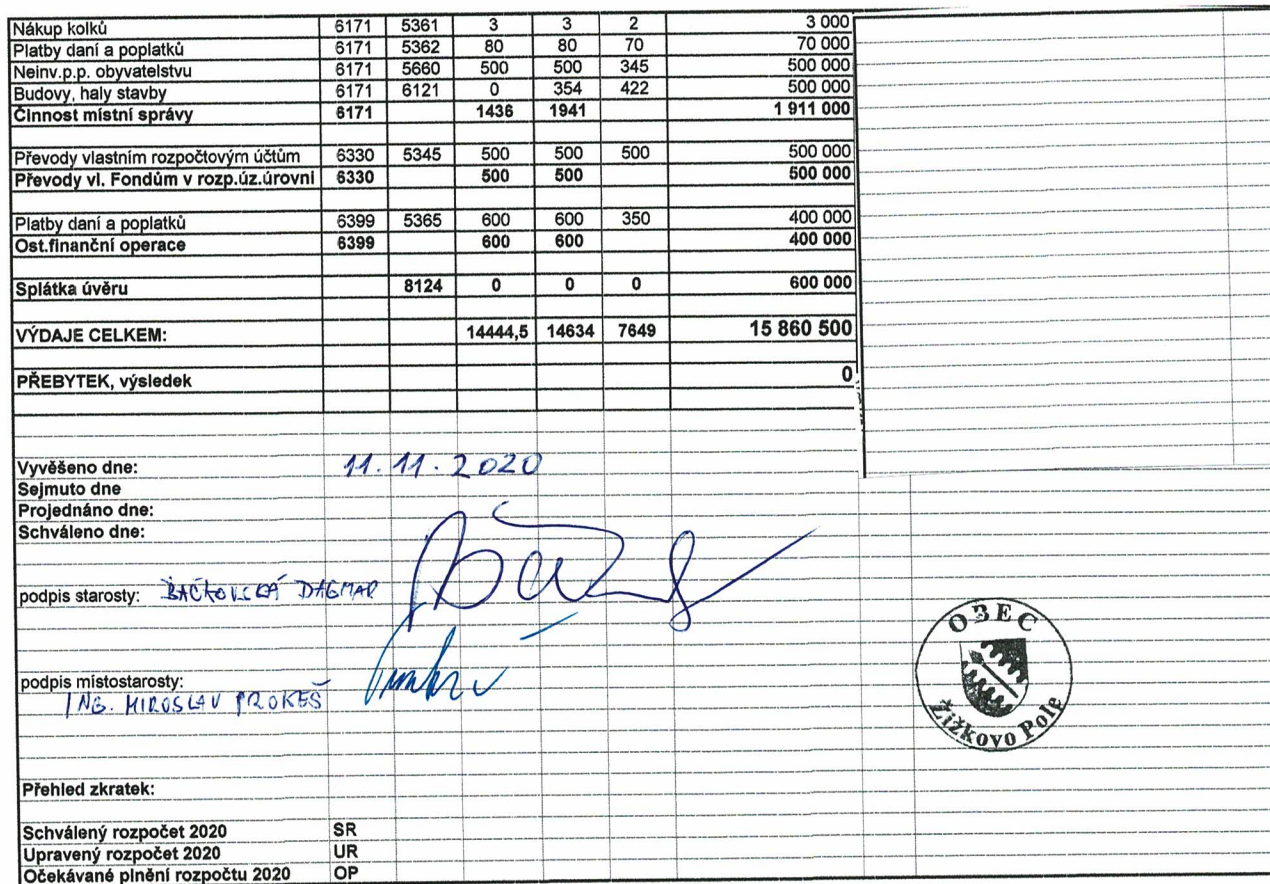 Nákup kolků 6171 5361 3 3 2 3 000
Platby daní a poplatků 6171 5362 80 80 70 70 000
Neinv.p.p. obyvatelstvu 6171 5660 500 500 345 500 000
Budovy, haly stavby 6171 6121 0 354 422 500 000
Činnost místní správy 6171 1436 1941 1 911 000
Převody vlastním rozpočtovým účtům 6330 5345 500 500 500 500 000
Převody vl. Fondům v rozp.úz.úrovni 6330 500 500 500 000
Platby daní a poplatků 6399 5365 600 600 350 400 000
Ost.finanční operace 6399 600 600 400 000
Splátka úvěru 8124 0 0 0 600 000
VÝDAJE CELKEM: 14444,5 14634 7649 15 860 500
PŘEBYTEK, výsledek 0
Vyvěšeno dne: 11.11.2020
Sejmuto dne
Projednáno dne:
Schváleno dne:
podpis starosty: BAČKOVSKÁ DAGMAR
podpis místostarosty:
ING. MIROSLAV PROKEŠ
OBEC
Žižkovo Pole
Přehled zkratek:
Schválený rozpočet 2020 SR
Upravený rozpočet 2020 UR
Očekávané plnění rozpočtu 2020 OP